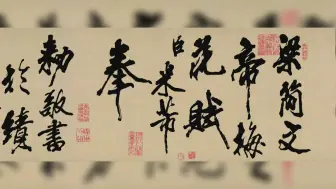 梁簡文
帝梅
花賦
臣米芾
奉
勅敬書
於